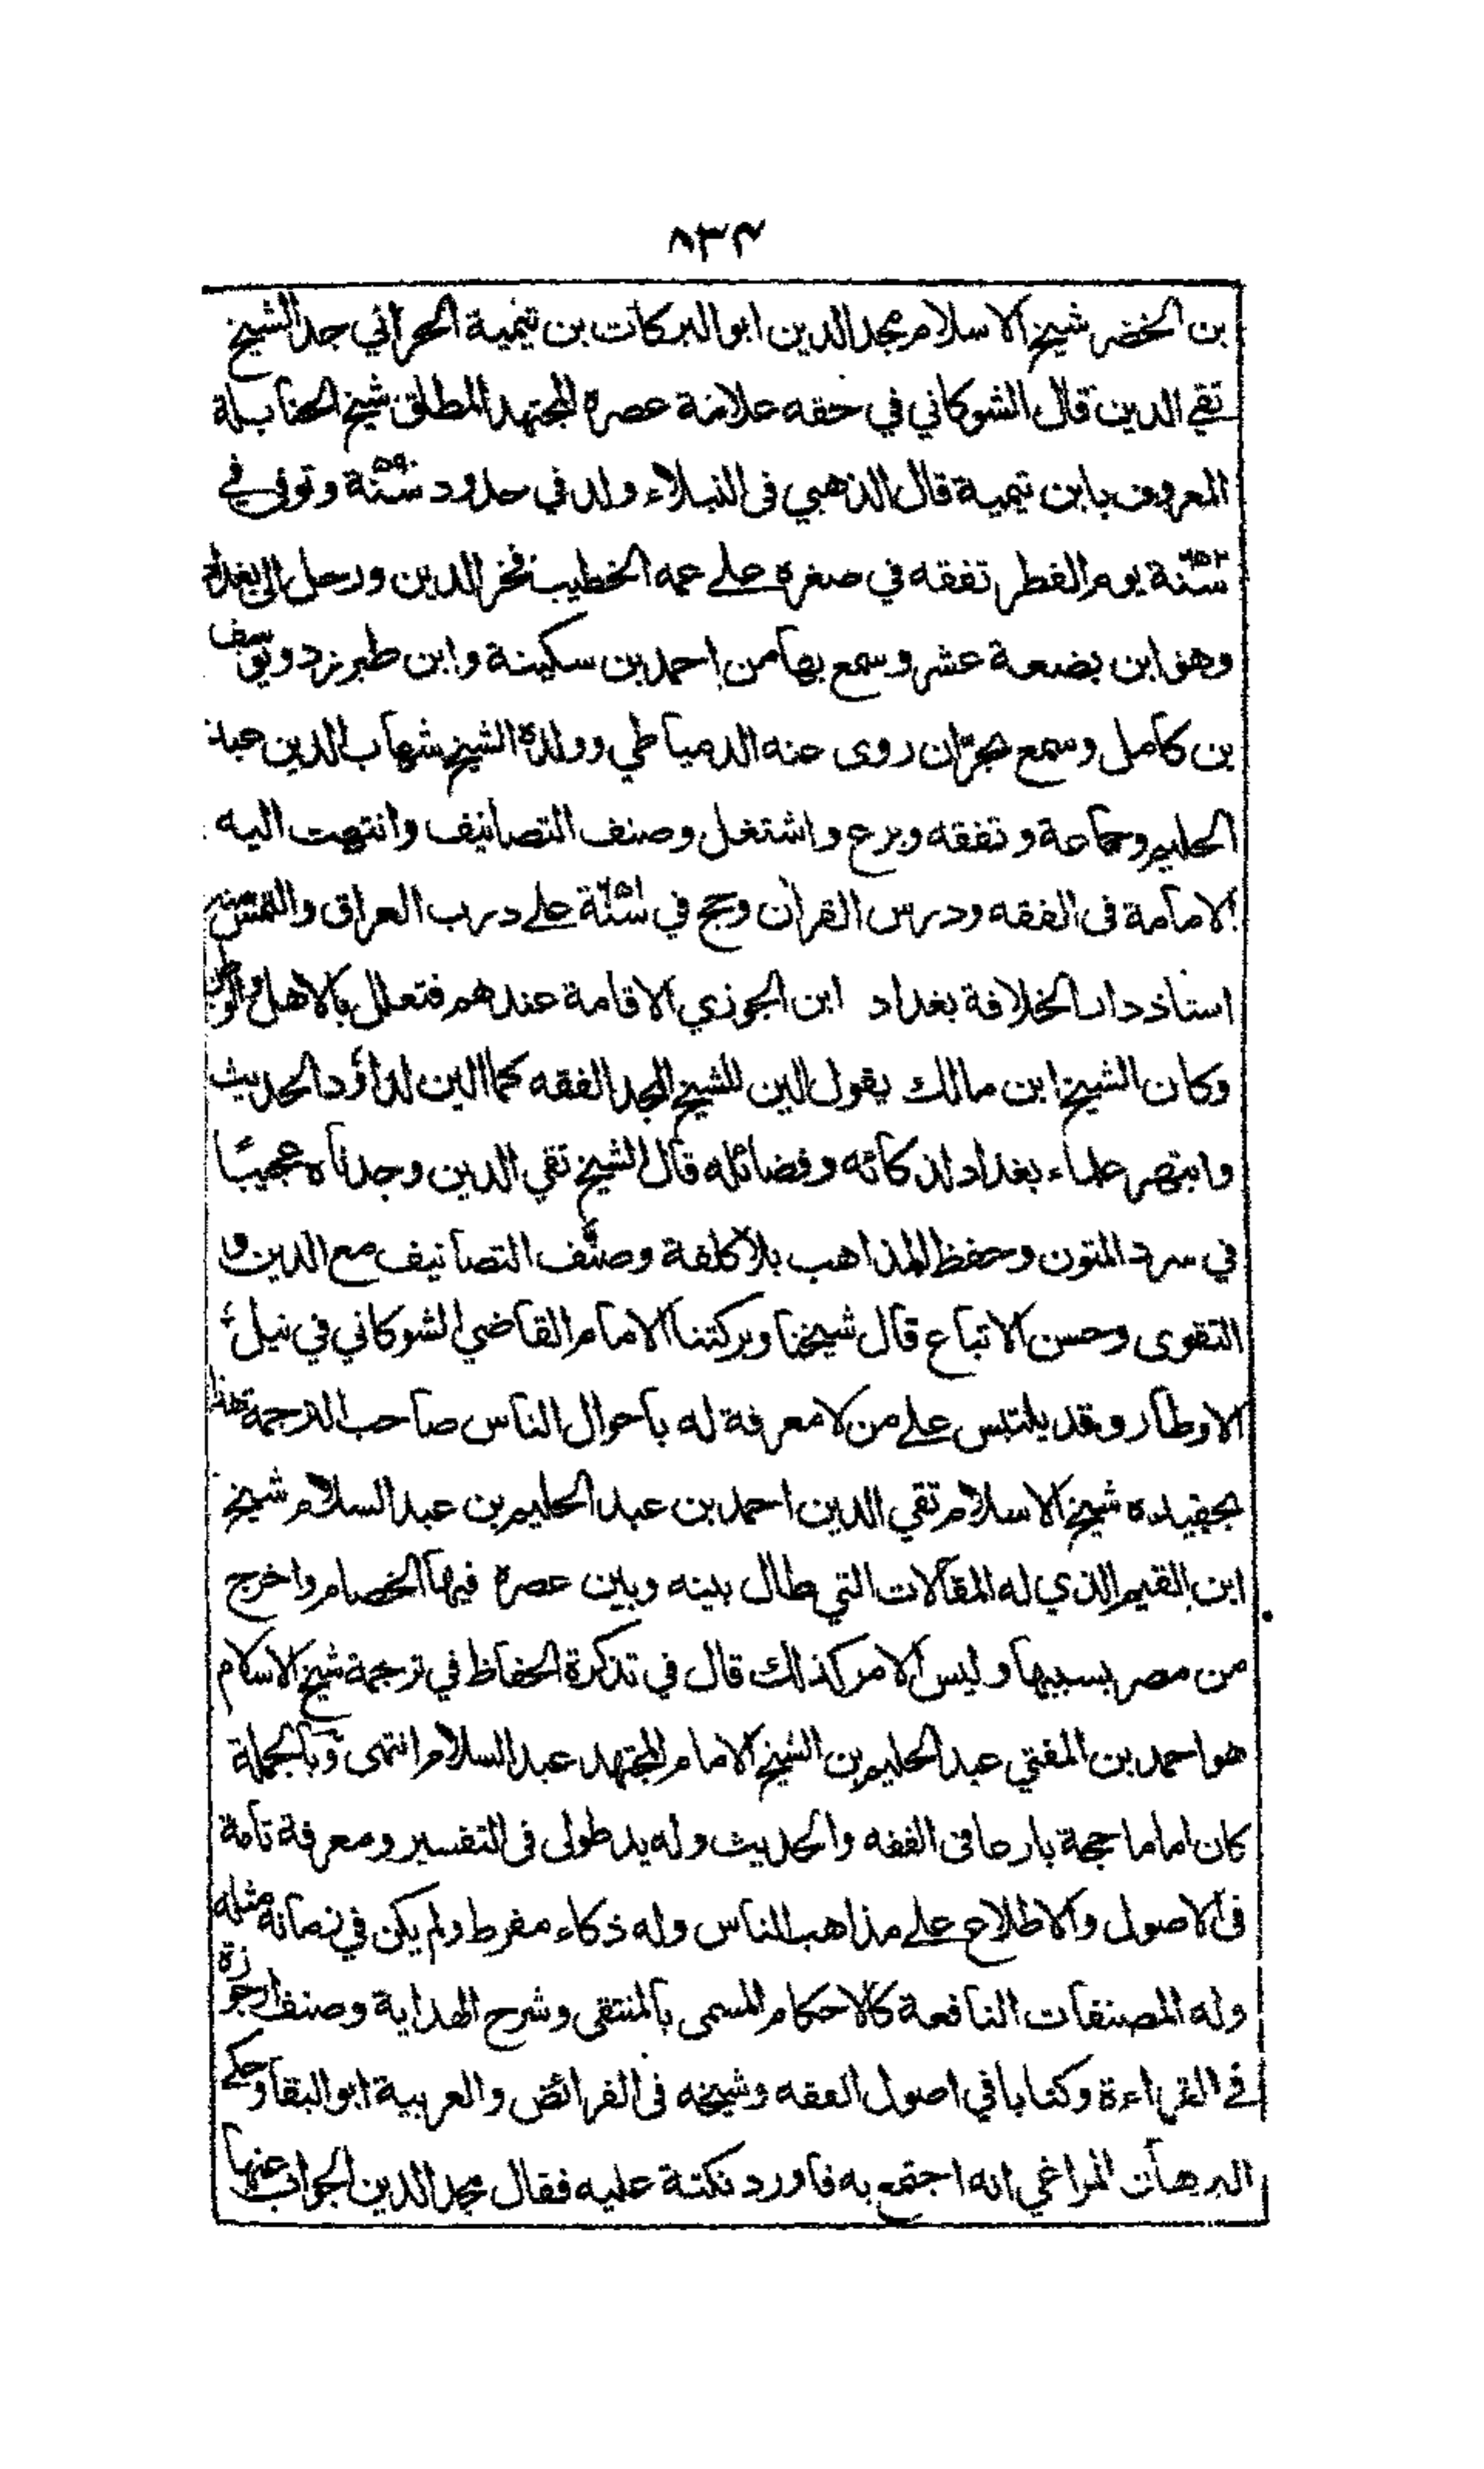 ٨٣٤
بن الخضر شيخ الاسلام مجد الدين ابو البركات بن تيمية الحراني جد الشيخ
تقي الدين قال الشوكاني في حقه علامة عصره المجتهد المطلق شيخ الحنابلة
المعروف بابن تيمية قال الذهبي فى النبلاء ولد في حدود سنة ٥٩٠ وتوفى في
سنة ٦٥٢ يوم الفطر تفقه في صغره على عمه الخطيب فخر الدين ورحل الى بغداد
وهو ابن بضعة عشر وسمع بها من احمد بن سكينة وابن طبرزد ويوسف
بن كامل وسمع بحران روى عنه الدمياطي وولده الشيخ شهاب الدين عبد
الحليم وجماعة وتفقه وبرع واشتغل وصنف التصانيف وانتهت اليه
الامامة فى الفقه ودرس القران وحج في سنة ٦٥١ على درب العراق والتمس منه
استاذ دار الخلافة بغداد ابن الجوزي الاقامة عندهم فتعلل بالاهل والوطن
وكان الشيخ ابن مالك يقول الين للشيخ المجد الفقه كما الين لداؤد الحديث
وابتهر علماء بغداد لذكائه وفضائله قال الشيخ تقي الدين وجدناه عجيبًا
في سرد المتون وحفظ المذاهب بلا كلفة وصنّف التصانيف مع الدين و
التقوى وحسن الاتباع قال شيخنا وبركتنا الامام القاضي الشوكاني في نيل
الاوطار وقد يلتبس على من لا معرفة له باحوال الناس صاحب الترجمة هذا
بحفيده شيخ الاسلام تقي الدين احمد بن عبد الحليم بن عبد السلام شيخ
ابن القيم الذي له المقالات التي طال بينه وبين عصره فيها الخصام واخرج
من مصر بسببها وليس الامر كذلك قال في تذكرة الحفاظ في ترجمة شيخ الاسلام
هو احمد بن المفتي عبد الحليم بن الشيخ الامام المجتهد عبد السلام انتهى وبالجملة
كان اماما حجة بارعا فى الفقه والحديث وله يد طولى فى التفسير ومعرفة تامة
فى الاصول والاطلاع على مذاهب الناس وله ذكاء مفرط ولم يكن في زمانه مثله
وله المصنفات النافعة كالاحكام المسمى بالمنتقى وشرح الهداية وصنف ارجوزة
في القراءة وكتابا في اصول الفقه وشيخه فى الفرائض والعربية ابو البقا وحكى
البرهان المراغي انه اجتمع به فاورد نكتة عليه فقال مجد الدين الجواب عنها